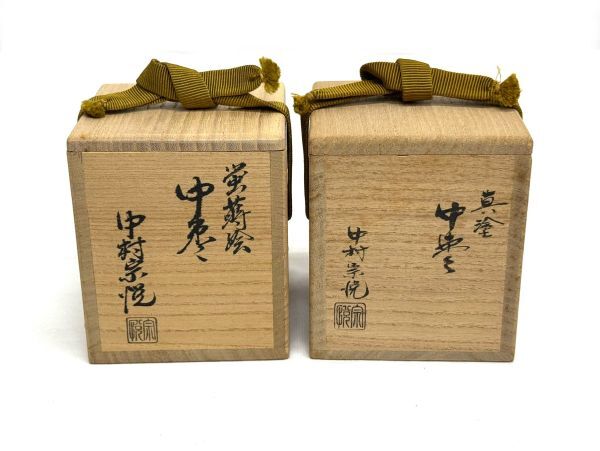 蛍蒔絵
中棗
中村宗悦
宗悦
真塗
中棗
中村宗悦
宗悦